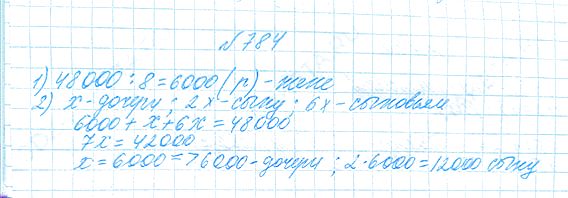 №784
1) 48000 : 8 = 6000 (р) - жене
2) x - дочери ; 2x - сыну ; 6x - сыновьям
6000 + x + 6x = 48000
7x = 42000
x = 6000 => 6000 - дочери ; 2·6000 = 12000 сыну